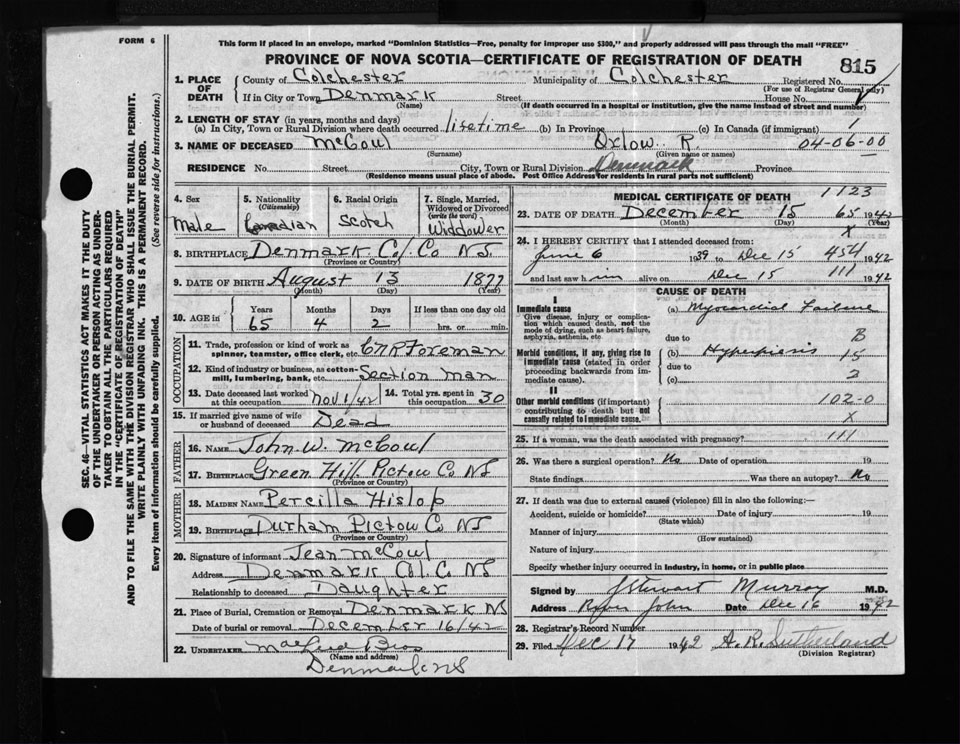 FORM 6
This form if placed in an envelope, marked "Dominion Statistics—Free, penalty for improper use $300," and properly addressed will pass through the mail "FREE"
PROVINCE OF NOVA SCOTIA—CERTIFICATE OF REGISTRATION OF DEATH
815
1. PLACE OF DEATH
County of Colchester Municipality of Colchester Registered No.
(For use of Registrar General only)
If in City or Town Denmark Street House No.
(Name) (If death occurred in a hospital or institution, give the name instead of street and number)
2. LENGTH OF STAY (in years, months and days)
(a) In City, Town or Rural Division where death occurred lifetime (b) In Province (c) In Canada (if immigrant) 1
3. NAME OF DECEASED McCoul Orlow R. 04-06-00
(Surname) (Given name or names)
RESIDENCE No. Street City, Town or Rural Division Denmark Province
(Residence means usual place of abode. Post Office Address for residents in rural parts not sufficient)
4. Sex Male
5. Nationality (Citizenship) Canadian
6. Racial Origin Scotch
7. Single, Married, Widowed or Divorced (write the word) Widdower
8. BIRTHPLACE Denmark Col. Co NS.
(Province or Country)
9. DATE OF BIRTH August 13 1877
(Month) (Day) (Year)
10. AGE in Years Months Days If less than one day old
65 4 2 hrs. or min.
OCCUPATION
11. Trade, profession or kind of work as spinner, teamster, office clerk, etc. CNR Foreman
12. Kind of industry or business, as cotton-mill, lumbering, bank, etc. Section man
13. Date deceased last worked at this occupation Nov 1/42
14. Total yrs. spent in this occupation 30
15. If married give name of wife or husband of deceased Dead
FATHER
16. NAME John W. McCoul
17. BIRTHPLACE Green Hill Pictow Co NS
(Province or Country)
MOTHER
18. MAIDEN NAME Percilla Hislop
19. BIRTHPLACE Durham Pictow Co NS
(Province or Country)
20. Signature of informant Jean McCoul
Address Denmark Col. Co NS
Relationship to deceased Daughter
21. Place of Burial, Cremation or Removal Denmark NS
Date of burial or removal December 16/42
22. UNDERTAKER Bros
(Name and address)
Denmark NS
MEDICAL CERTIFICATE OF DEATH
1123
23. DATE OF DEATH December 15 65 1942
(Month) (Day) (Year)
X
24. I HEREBY CERTIFY that I attended deceased from:
June 6 1939 to Dec 15 454 1942
and last saw him alive on Dec 15 111 1942
CAUSE OF DEATH
I
Immediate cause
Give disease, injury or complication which caused death, not the mode of dying, such as heart failure, asphyxia, asthenia, etc.
(a) Myocardial Failure
due to B
Morbid conditions, if any, giving rise to immediate cause (stated in order proceeding backwards from immediate cause).
(b) Hyperpiesis 15
due to
(c) 2
II
Other morbid conditions (if important) contributing to death but not causally related to immediate cause.
102-0
X
25. If a woman, was the death associated with pregnancy? 111
26. Was there a surgical operation? No Date of operation 19
State findings Was there an autopsy? No
27. If death was due to external causes (violence) fill in also the following:—
Accident, suicide or homicide? Date of injury 19
(State which)
Manner of injury
(How sustained)
Nature of injury
Specify whether injury occurred in industry, in home, or in public place
Signed by J Stewart Murray M.D.
Address River John Date Dec 16 1942
28. Registrar's Record Number
29. Filed Dec 17 1942 A. R. Sutherland
(Division Registrar)
SEC. 46—VITAL STATISTICS ACT MAKES IT THE DUTY
OF THE UNDERTAKER OR PERSON ACTING AS UNDERTAKER TO OBTAIN ALL THE PARTICULARS REQUIRED
IN THE "CERTIFICATE OF REGISTRATION OF DEATH"
AND TO FILE THE SAME WITH THE DIVISION REGISTRAR WHO SHALL ISSUE THE BURIAL PERMIT.
WRITE PLAINLY WITH UNFADING INK. THIS IS A PERMANENT RECORD.
Every item of information should be carefully supplied. (See reverse side for instructions.)